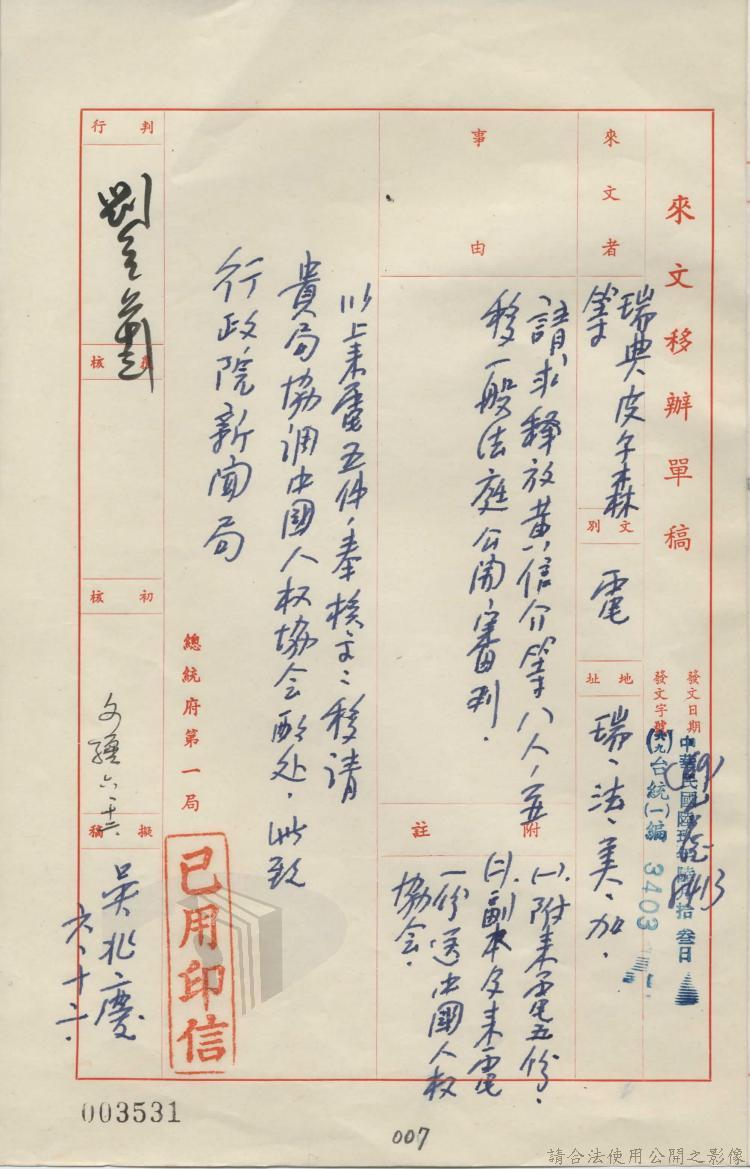 來文移辦單稿
發文日期
中華民國陸玖年陸月拾叁日
發文字號
台統(一)編 3403
來文者
瑞典皮尔森
等
文別
電
地址
瑞、法、美、加.
事由
請求釋放黃信介等八人,并
移一般法庭公開審判.
附註
(一).附来電五份.
(二).副本及来電
一份送中國人权
協会.
以上来電五件,奉核交:移請
貴局協调中國人权協会酌处.此致
行政院新聞局
總統府第一局
已用印信
判行
覆核
初核
擬稿
吳兆慶
六、十二.
003531
007
請合法使用公開之影像